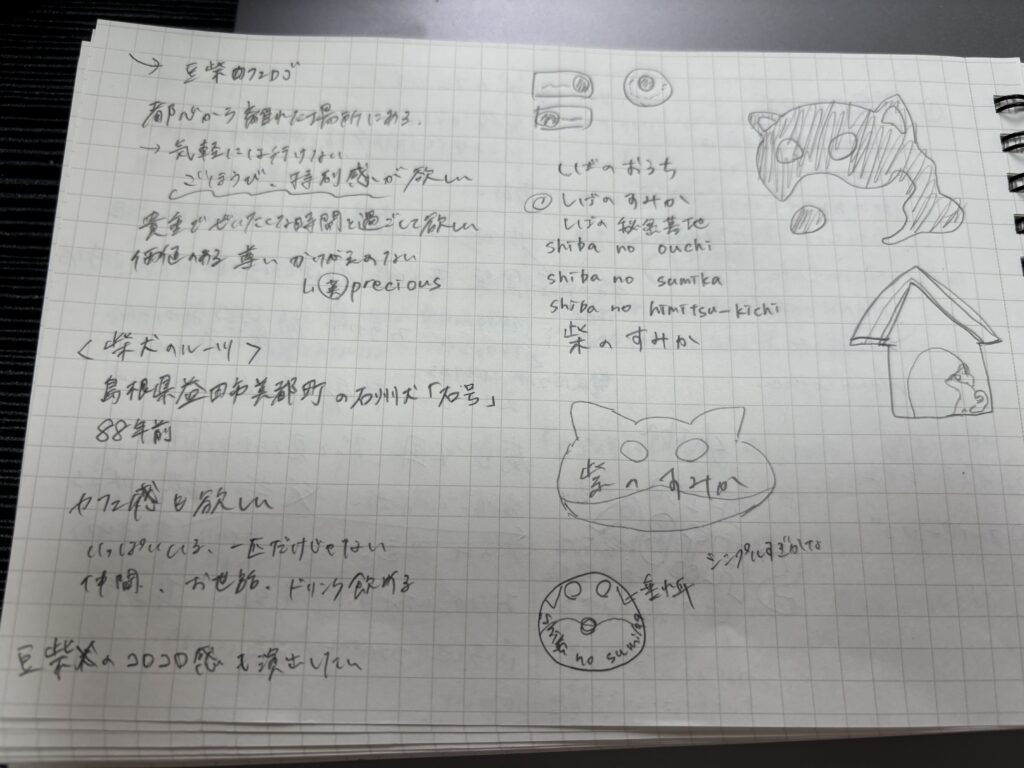 → 豆柴カフェロゴ
都心から離れた場所にある。
→ 気軽には行けない
ごほうび、特別感が欲しい
貴重でぜいたくな時間を過ごして欲しい
価値のある 尊い かけがえのない
precious
<柴犬のルーツ>
島根県益田市美都町の石州犬「石号」
88年前
カフェ感も欲しい
いっぱいいる、一匹だけじゃない
仲間、お世話、ドリンク飲める
豆柴犬のコロコロ感も演出したい
しばのおうち
しばのすみか
しばの秘密基地
shiba no ouchi
shiba no sumika
shiba no himitsu-kichi
柴のすみか
柴のすみか
シンプルすぎかな
垂れ耳
shiba no sumika